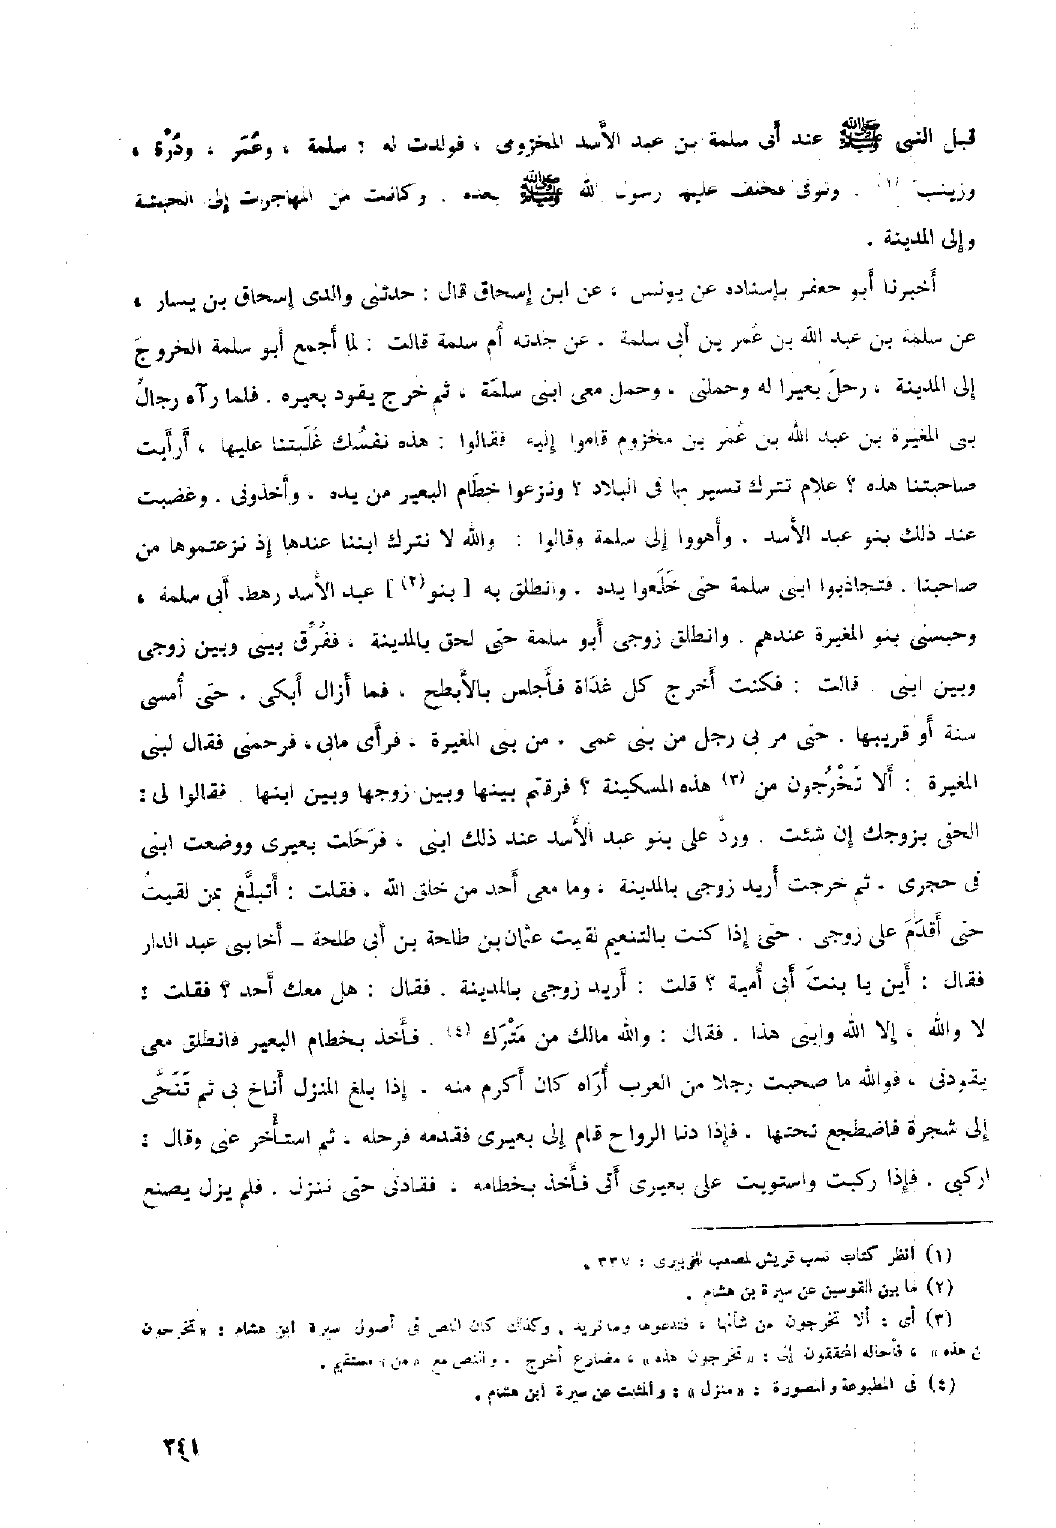 قبل النبي ﷺ عند أبى سلمة بن عبد الأسد المخزومى ، فولدت له : سلمة ، وعُمَر ، ودُرْة ،
وزينب (١) . وتوفى فخلف عليها رسول الله ﷺ بعده . وكانت من المهاجرات إلى الحبشة
وإلى المدينة .
أخبرنا أبو جعفر بإسناده عن يونس ، عن ابن إسحاق قال : حدثنى والدى إسحاق بن يسار ،
عن سلمة بن عبد الله بن عُمَر بن أبى سلمة . عن جَدته أم سلمة قالت : لما أجمع أبو سلمة الخروجَ
إلى المدينة ، رحلَ بعيرا له وحملنى ، وحمل معى ابنى سلمَة ، ثم خرج يقود بعيره . فلما رآه رجالُ
بنى المغيرة بن عبد الله بن عُمَر بن مخزوم قاموا إليه فقالوا : هذه نفسُك غَلَبتنا عليها ، أرأيت
صاحبتنا هذه ؟ علام نترك تسير بها فى البلاد ؟ ونزعوا خطَام البعير من يده ، وأخذونى . وغضبت
عند ذلك بنو عبد الأسد . وأهووا إلى سلمة وقالوا : والله لا نترك ابننا عندها إذ نزعتموها من
صاحبنا . فتجاذبوا ابنى سلمة حتى خَلَعوا يده . وانطلق به [ بنو (٢) ] عبد الأسد رهط أبى سلمة ،
وحبسنى بنو المغيرة عندهم . وانطلق زوجى أبو سلمة حتى لحق بالمدينة ، ففُرِّق بينى وبين زوجى
وبين ابنى . قالت : فكنت أخرج كل غدَاة فأجلس بالأبطح ، فما أزال أبكى . حتى أُمسى
سنة أو قريبها . حتى مر بى رجل من بنى عمى . من بنى المغيرة ، فرأى مابى ، فرحمنى فقال لبنى
المغيرة : ألا تَخْرُجون من (٣) هذه المسكينة ؟ فرقتم بينها وبين زوجها وبين ابنها . فقالوا لى :
الحقى بزوجك إن شئت . وردَّ على بنو عبد الأسد عند ذلك ابنى ، فرَحَلت بعيرى ووضعت ابنى
فى حجرى . ثم خرجت أريد زوجى بالمدينة ، وما معى أحد من خلق الله . فقلت : أتبلَّغ بمن لقيتُ
حتى أقدَمَ على زوجى . حتى إذا كنت بالتنعيم لقيت عثمان بن طلحة بن أبى طلحة – أخا بنى عبد الدار
فقال : أين يا بنتَ أبى أُمية ؟ قلت : أريد زوجى بالمدينة . فقال : هل معك أحد ؟ فقلت :
لا والله ، إلا الله وابنى هذا . فقال : والله مالك من مَتْرَك (٤) . فأخذ بخطام البعير فانطلق معى
يقودنى ، فوالله ما صحبت رجلا من العرب أرَاه كان أكرم منه . إذا بلغ المنزل أناخ بى ثم تَنَحَّى
إلى شجرة فاضطجع تحتها . فإذا دنا الرواح قام إلى بعيرى فقدمه فرحله ، ثم استأخر عنى وقال :
اركبى . فإذا ركبت واستويت على بعيرى أتى فأخذ بخطامه ، فقادنى حتى ننزل . فلم يزل يصنع
(١) انظر كتاب نسب قريش لمصعب الزبيرى : ٣٣٧ .
(٢) ما بين القوسين عن سيرة بن هشام .
(٣) أى : ألا تخرجون من شأنها ، فتدعوها وما تريد . وكذلك كان النص فى أصول سيرة ابن هشام : « تخرجون
من هذه » ، فأحاله المحققون إلى : « تخرجون هذه » ، مضارع أخرج . والنص مع « من » مستقيم .
(٤) فى المطبوعة والمصورة : « منزل » : والمثبت عن سيرة ابن هشام .
٣٤١